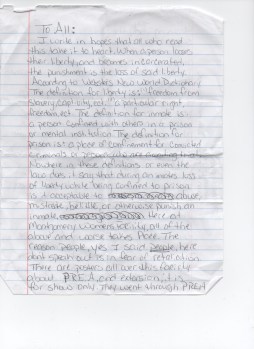 To All:
I write in hopes that all who read
this take it to heart. When a person loses
their liberty and becomes incarcerated,
the punishment is the loss of said liberty.
According to Webster's New World Dictionary
The definition for liberty is: "freedom from
slavery, captivity, ect." "a particular right,
freedom, ect. The definition for inmate is
a person confined with others in a prison
or mental institution. The definition for
prison is: a place of confinement for convicted
criminals or
No where in these definitions or even the
law does it say that during an inmates loss
of liberty while being confined to prison
is it acceptable to abuse,
mistreat, belittle or otherwise punish an
inmate. Here at
Montgomery Women's facility, all of the
above and worse takes place. The
reason people, yes I said people, here
don't speak out is in fear of retaliation.
There are posters all over this facility
about P.R.E.A and extension, it is
for show only. They went through PREA